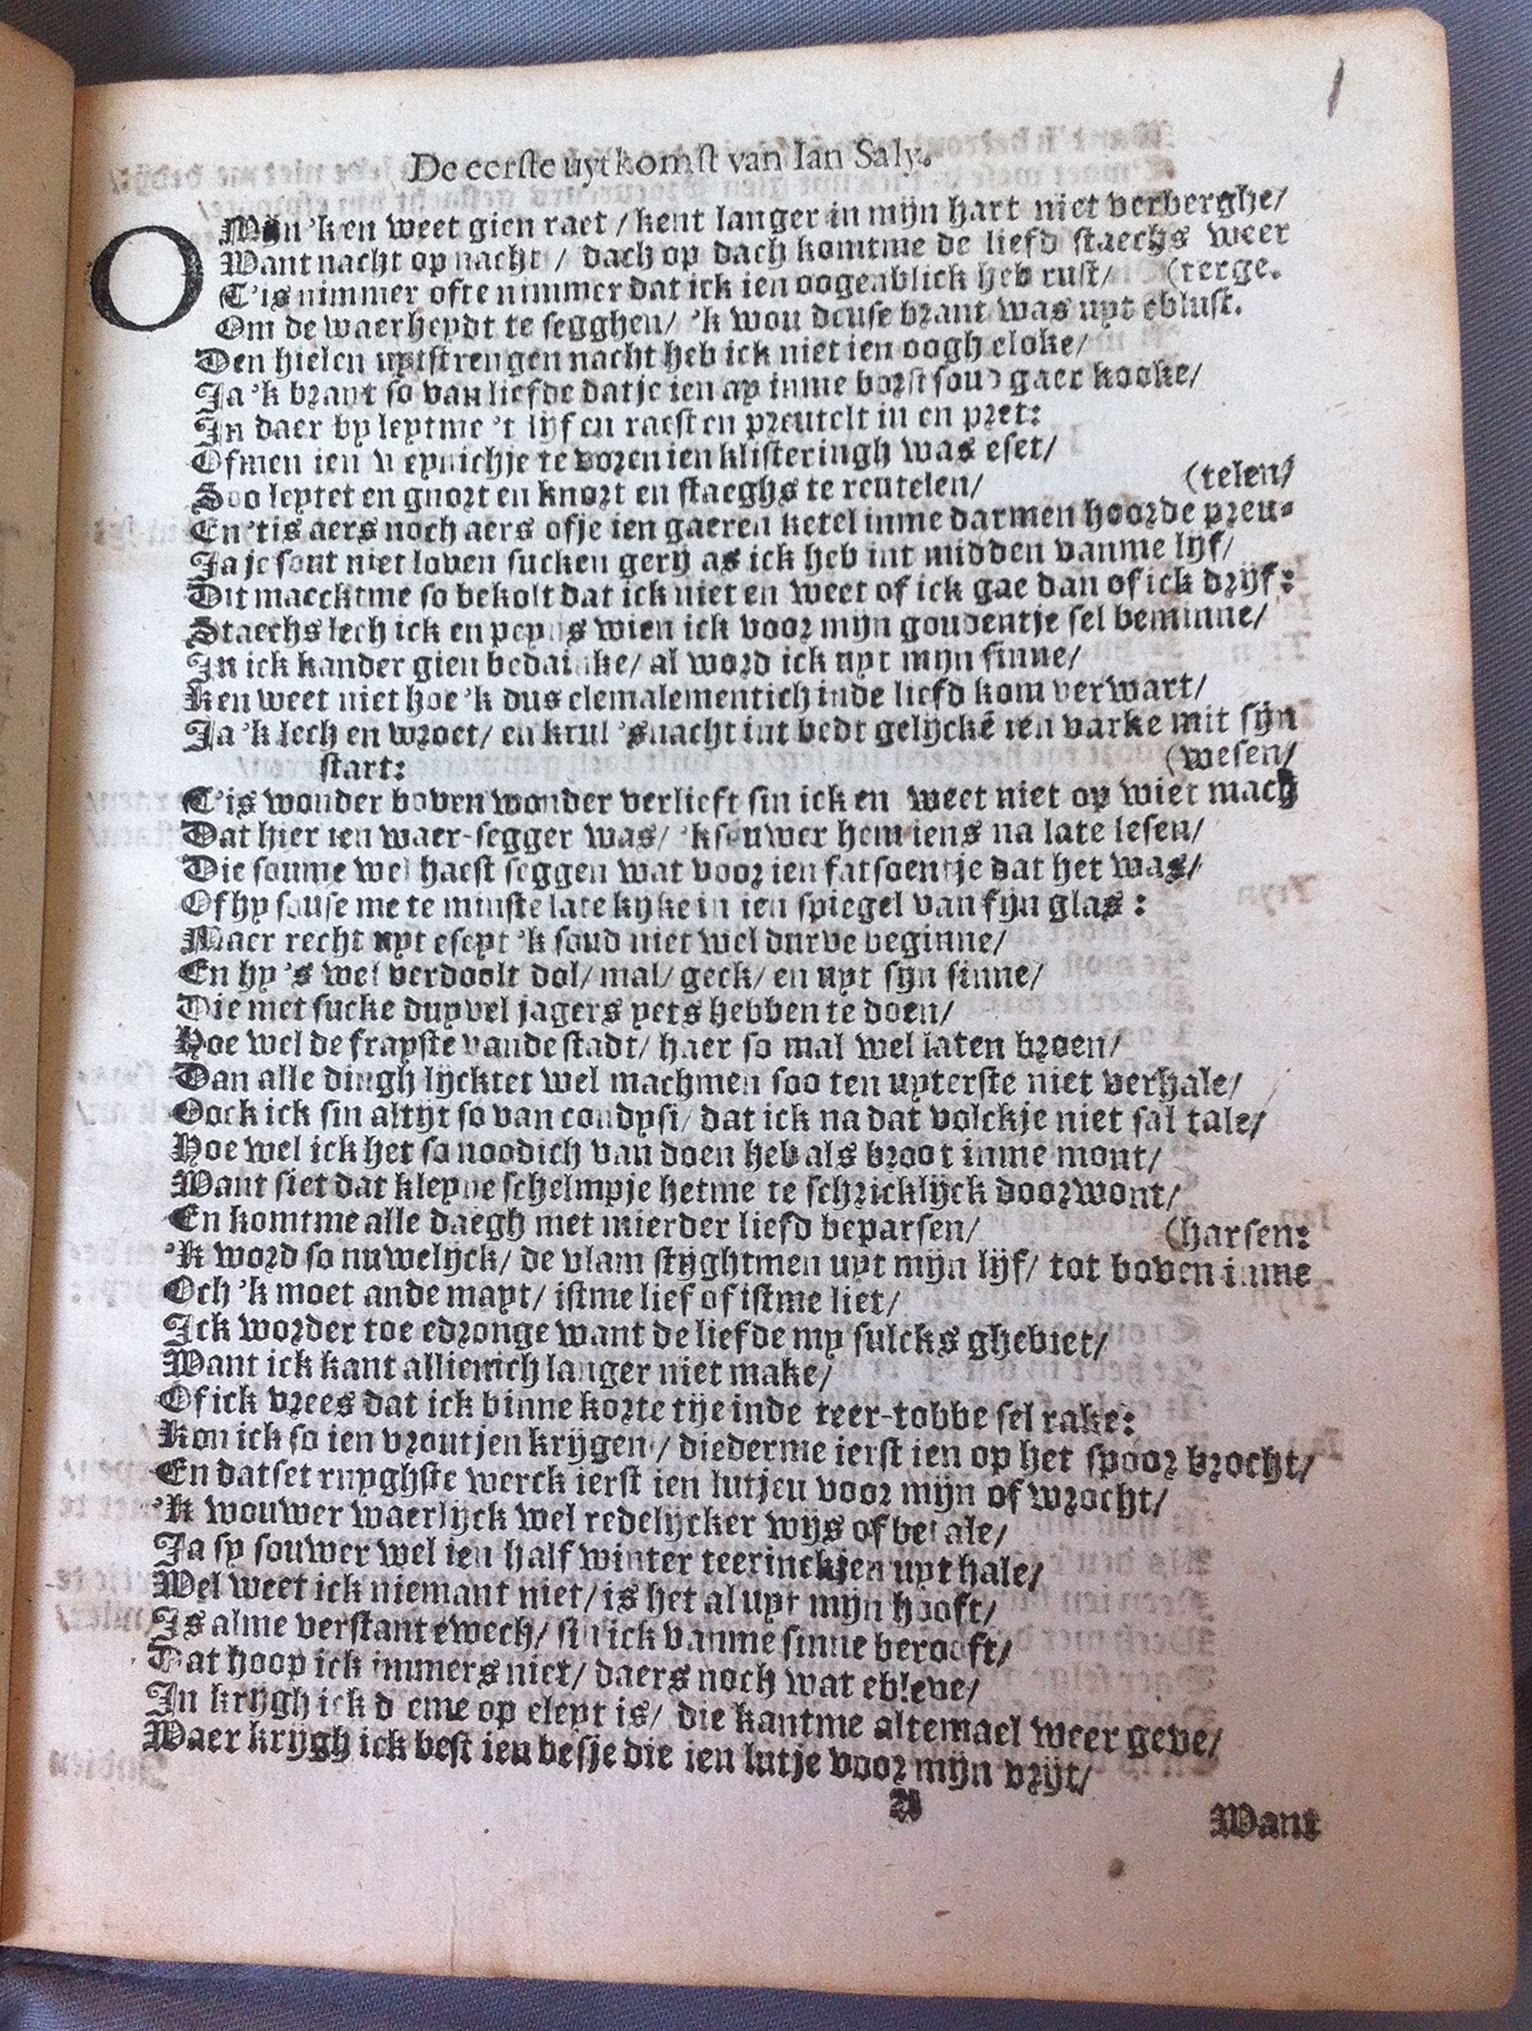 1
De eerste uytkomst van Ian Saly.
O Mijn 'k en weet gien raet / kent langer in mijn hart niet verberghe/
Want nacht op nacht / dach op dach komtme de liefd staechs weer
T'is nimmer ofte nimmer dat ick ien oogenblick heb rust/ (terge.
Om de waerheydt te segghen/ 'k wou deuse brant was uyt eblust.
Den hielen uytstrengen nacht heb ick niet ien oogh eloke/
Ja 'k brant so van liefde datje ien ay inme borst soud gaer kooke/
In daer by leytme 't lijf en raest en preutelt in en pret:
Ofmen ien veynichje te voren ien klisteringh was eset/
Soo leytet en gnort en knort en staeghs te reutelen/ (telen/
En 'tis aers noch aers ofje ien gaeren ketel inme darmen hoorde preu-
Ja je sout niet loven sucken gerij as ick heb int midden vanme lijf/
Dit maecktme so bekolt dat ick niet en weet of ick gae dan of ick drijf:
Staechs lech ick en peyns wien ick voor mijn goudentje sel beminne/
In ick kander gien bedainke/ al word ick uyt mijn sinne/
Ken weet niet hoe 'k dus elemalementich inde liefd kom verwart/
Ja 'k lech en wroet/ en krul 'snacht int bedt gelijckē ien varke mit sijn
start: (wesen/
T'is wonder boven wonder verlieft sin ick en weet niet op wiet mach
Dat hier ien waer-segger was/ 'k souwer hem iens na late lesen/
Die soume wel haest seggen wat voor ien fatsoentje dat het was/
Of hy souse me te minste late kijke in ien spiegel van fijn glas:
Maer recht uyt eseyt 'k soud niet wel durve beginne/
En hy 's wel verdoolt dol/ mal/ geck/ en uyt sijn sinne/
Die met sucke duyvel jagers yets hebben te doen/
Hoe wel de frayste vande stadt/ haer so mal wel laten broen/
Dan alle dingh lijcktet wel machmen soo ten uyterste niet verhale/
Oock ick sin altijt so van condysi/ dat ick na dat volckje niet sal tale/
Hoe wel ick het so noodich van doen heb als broot inme mont/
Want siet dat kleyne schelmpje hetme te schricklijck doorwont/
En komtme alle daegh met mierder liefd beparsen/ (harsen:
'K word so nuwelijck/ de vlam stijghtmen uyt mijn lijf/ tot boven inme
Och 'k moet ande mayt/ istme lief of istme liet/
Ick worder toe edronge want de liefde my sulcks ghebiet/
Want ick kant allienich langer niet make/
Of ick vrees dat ick binne korte tije inde teer-tobbe sel rake:
Kon ick so ien vroutjen krijgen / diederme ierst ien op het spoor brocht/
En datset ruyghste werck ierst ien lutjeu voor mijn of wrocht/
'K wouwer waerlijck wel redelijcker wijs of betale/
Ja sy souwer wel ien half winter teerinckjen uyt hale/
Wel weet ick niemant niet/ is het al uyt mijn hooft/
Is alme verstant ewech/ sin ick vanme sinne berooft/
Dat hoop ick immers niet/ daers noch wat ebleve/
In krygh ick d eme op eleyt is/ die kantme altemael weer geve/
Waer krijgh ick best ien besje die ien lutje voor mijn vrijt/
A
Want